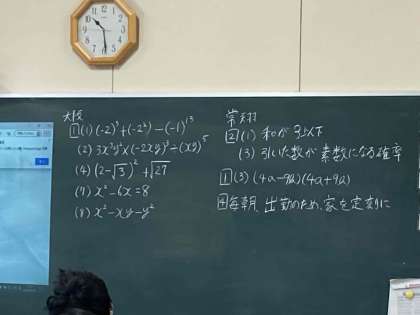 大阪
1 (1) (-2)³+(-2²)-(-1)¹³
(2) 3x³y²×(-2xy)³÷(xy)⁵
(4) (2-√3)²+√27
(7) x²-6x=8
(8) x²-xy-y²
常翔
2 (1) 和が 以下
(3) 引いた数が素数になる確率
1 (3) (4a-9b)(4a+9b)
4 毎朝、出勤のため、家を定刻に